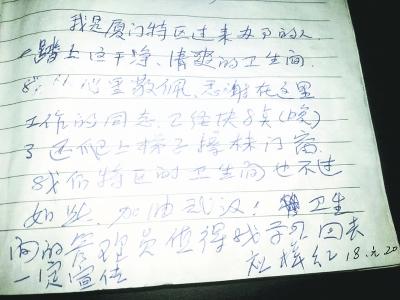 我是厦门特区过来办事的人
踏上这干净、清爽的卫生间
我 心里敬佩、感谢在这里
工作的同志、已经快(晚)
了还爬上梯子擦棒门窗
我们特区的卫生间也不过
如此、加油武汉! 卫生
间的管理员值得我学习回去
一定宣传 赵样红 18.元20